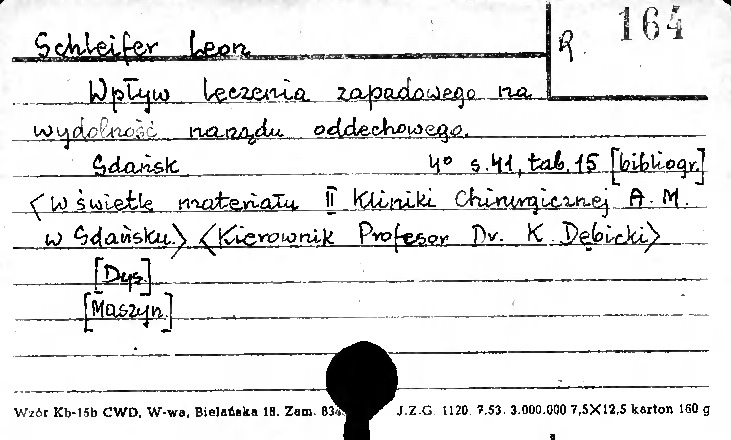 Schleifer Leon
R. 164
Wpływ leczenia zapadowego na
wydolność narządu oddechowego.
Gdańsk 4° s.41, tab.15 [bibliogr.]
<W świetle materiału II Kliniki Chirurgicznej A.M.
w Gdańsku.> <Kierownik Profesor Dr. K. Dębicki>
[Dys.]
[Maszyn.]
Wzór Kb-15b CWD, W-wa, Bielańska 18. Zam. 834 J.Z.G. 1120. 7.53. 3.000.000 7,5×12,5 karton 160 g